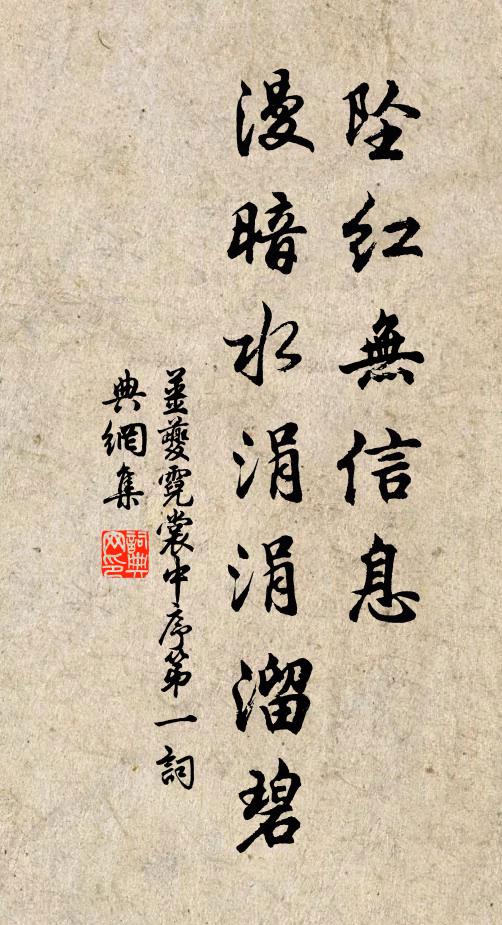 坠紅無信息
漫暗水涓涓溜碧
姜夔霓裳中序第一詞
典網集
詞典網印